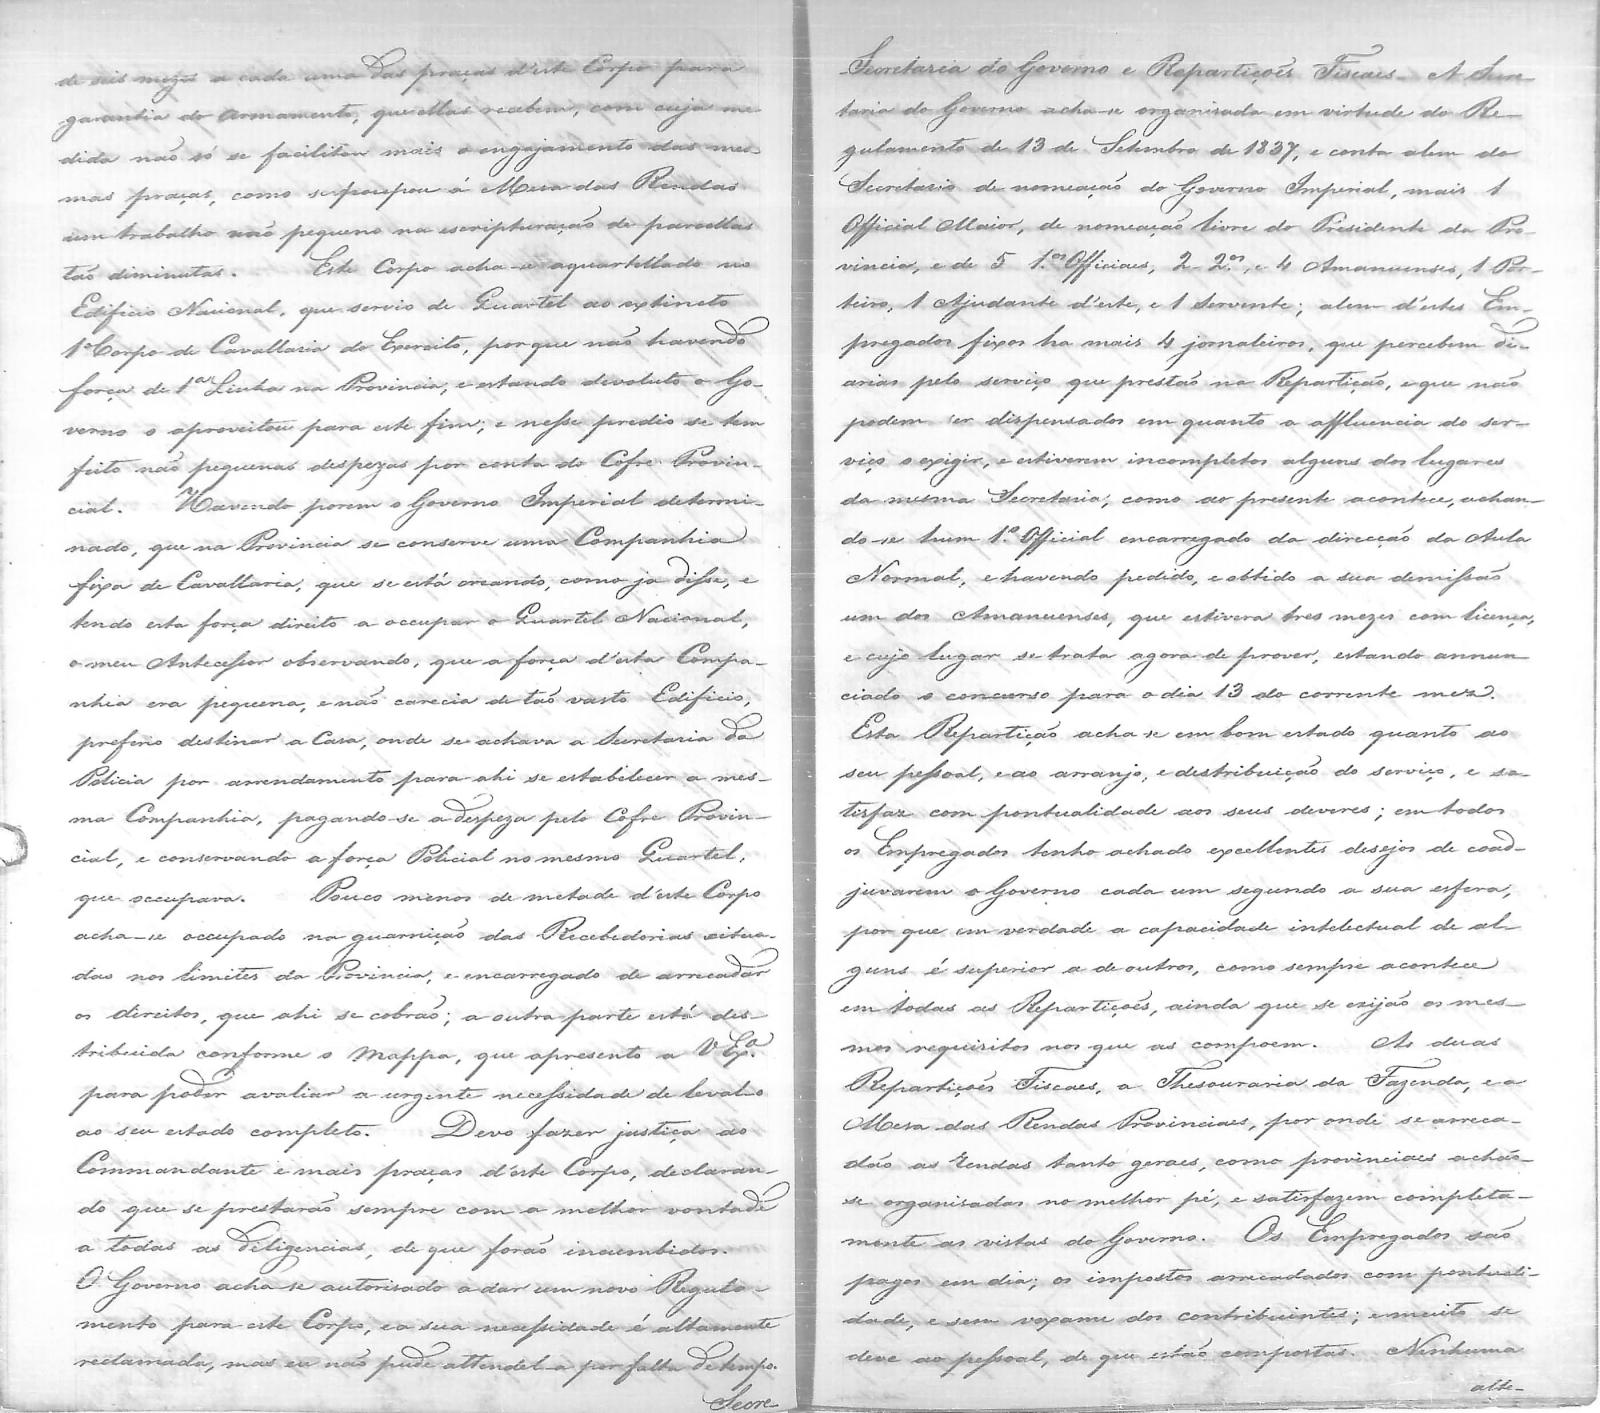 de seis mezes a cada uma das praças d'este Corpo para
garantia do armamento, que ellas recebem, com cuja me-
dida não só se facilitou mais o engajamento das mes-
mas praças, como se poupou á Mesa das Rendas
um trabalho não pequeno na escripturação de parcellas
tão diminutas. Este Corpo acha-se aquartellado no
Edificio Nacional, que servio de Quartel ao extincto
1º Corpo de Cavallaria do Exercito, porque não havendo
força de 1ª Linha na Provincia, e estando devoluto o Go-
verno o aproveitou para este fim; e nesse predio se tem
feito não pequenas despezas por conta do Cofre Provin-
cial. Havendo porem o Governo Imperial determi-
nado, que na Provincia se conserve uma Companhia
fixa de Cavallaria, que se está creando, como ja disse, e
tendo esta força direito a occupar o Quartel Nacional,
o meu Antecessor observando, que a força d'esta Compa-
nhia era pequena, e não carecia de tão vasto Edificio,
preferio destinar a Casa, onde se achava a Secretaria da
Policia por arrendamento para ahi se estabelecer a mes-
ma Companhia, pagando-se a despeza pelo Cofre Provin-
cial, e conservando a força Policial no mesmo Quartel,
que occupava. Pouco menos de metade d'este Corpo
acha-se occupado na guarnição das Recebedorias situa-
das nos limites da Provincia, e encarregado de arrecadar
os direitos, que ahi se cobrão; a outra parte está des-
tribuida conforme o Mappa, que apresento a V Exª.
para poder avaliar a urgente necessidade de leval-o
ao seu estado completo. Devo fazer justiça ao
Commandante e mais praças d'este Corpo, declaran-
do que se prestarão sempre com a melhor vontade
a todas as diligencias, de que forão incumbidos.
O Governo acha-se autorisado a dar um novo Regula-
mento para este Corpo, e a sua necessidade é altamente
reclamada, mas eu não pude attendel-a por falta de tempo.
Secre-
Secretaria do Governo e Repartições Fiscaes - A Secre-
taria do Governo acha-se organisada em virtude do Re-
gulamento de 13 de Setembro de 1837, e conta alem do
Secretario de nomeação do Governo Imperial, mais 1
Official Maior, de nomeação livre do Presidente da Pro-
vincia, e de 5 1.os Officiaes, 2 2.os, e 4 Amanuenses, 1 Por-
teiro, 1 Ajudante d'este, e 1 Servente; alem d'estes Em-
pregados fixos ha mais 4 jornaleiros, que percebem di-
arias pelo serviço que prestão na Repartição, e que não
podem ser dispensados em quanto a affluencia do ser-
viço o exigir, e estiverem incompletos alguns dos lugares
da mesma Secretaria, como ao presente acontece, achan-
do-se hum 1.º Official encarregado da direcção da Aula
Normal, e havendo pedido, e obtido a sua demissão
um dos Amanuenses, que estivera tres mezes com licença,
e cujo lugar se trata agora de prover, estando annun-
ciado o concurso para o dia 13 do corrente mez.
Esta Repartição acha-se em bom estado quanto ao
seu pessoal, e ao arranjo, e distribuição do serviço, e sa-
tisfaz com pontualidade aos seus deveres; em todos
os Empregados tenho achado excellentes desejos de coad-
juvarem o Governo cada um segundo a sua esfera,
por que em verdade a capacidade intelectual de al-
guns é superior a de outros, como sempre acontece
em todas as Repartições, ainda que se exijão os mes-
mos requisitos nos que as compoem. As duas
Repartições Fiscaes, a Thesouraria da Fazenda, e a
Mesa das Rendas Provinciaes, por onde se arreca-
dão as rendas tanto geraes, como provinciaes achão-
se organisadas no melhor pé, e satisfazem completa-
mente as vistas do Governo. Os Empregados são
pagos em dia; os impostos arrecadados com pontuali-
dade, e sem vexame dos contribuintes; e muito se
deve ao pessoal, de que estão compostas. Nenhuma
alte-